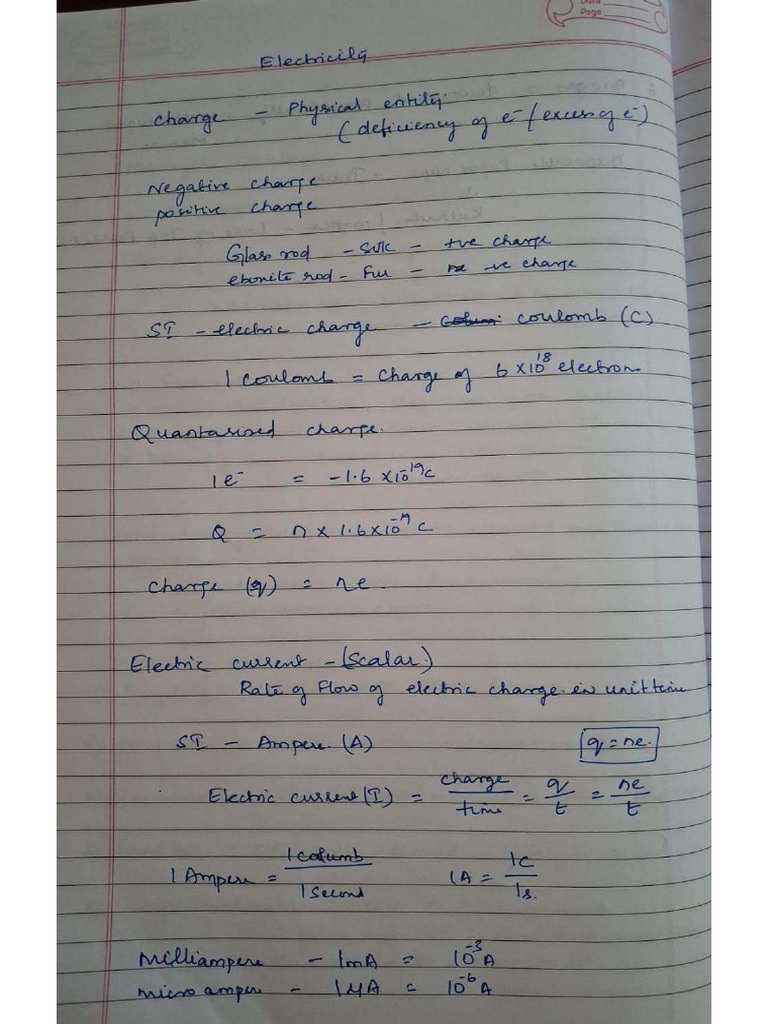 Page
Electricity
Charge - Physical entity.
(deficiency of e⁻/excess of e⁻)
Negative charge
positive charge
Glass rod - Silk - +ve charge
ebonite rod - Fur - -ve charge
SI - electric charge - coulomb (C)
1 coulomb = charge of 6×10¹⁸ electron
Quantarised charge.
1e⁻ = -1.6 ×10⁻¹⁹c
Q = n × 1.6×10⁻¹⁹ c
Charge (q) = ne.
Electric current - (Scalar.)
Rate of Flow of electric charge in unit time
SI - Ampere. (A)
q = ne.
Electric current (I) = charge/time = q/t = ne/t
1 Ampere = 1 columb/1 Second 1A = 1c/1s.
Milliampere - 1mA = 10⁻³ A
micro ampere - 1μA = 10⁻⁶ A